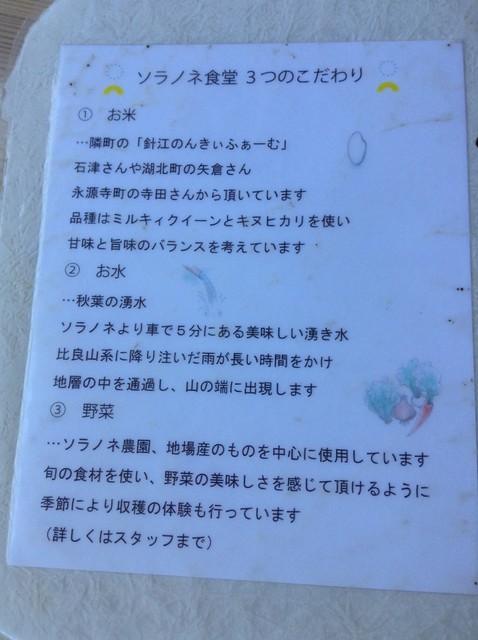 ソラノネ食堂 3つのこだわり
① お米
…隣町の「針江のんきぃふぁーむ」
石津さんや湖北町の矢倉さん
永源寺町の寺田さんから頂いています
品種はミルキィクイーンとキヌヒカリを使い
甘味と旨味のバランスを考えています
② お水
…秋葉の湧水
ソラノネより車で5分にある美味しい湧き水
比良山系に降り注いだ雨が長い時間をかけ
地層の中を通過し、山の端に出現します
③ 野菜
…ソラノネ農園、地場産のものを中心に使用しています
旬の食材を使い、野菜の美味しさを感じて頂けるように
季節により収穫の体験も行っています
（詳しくはスタッフまで）